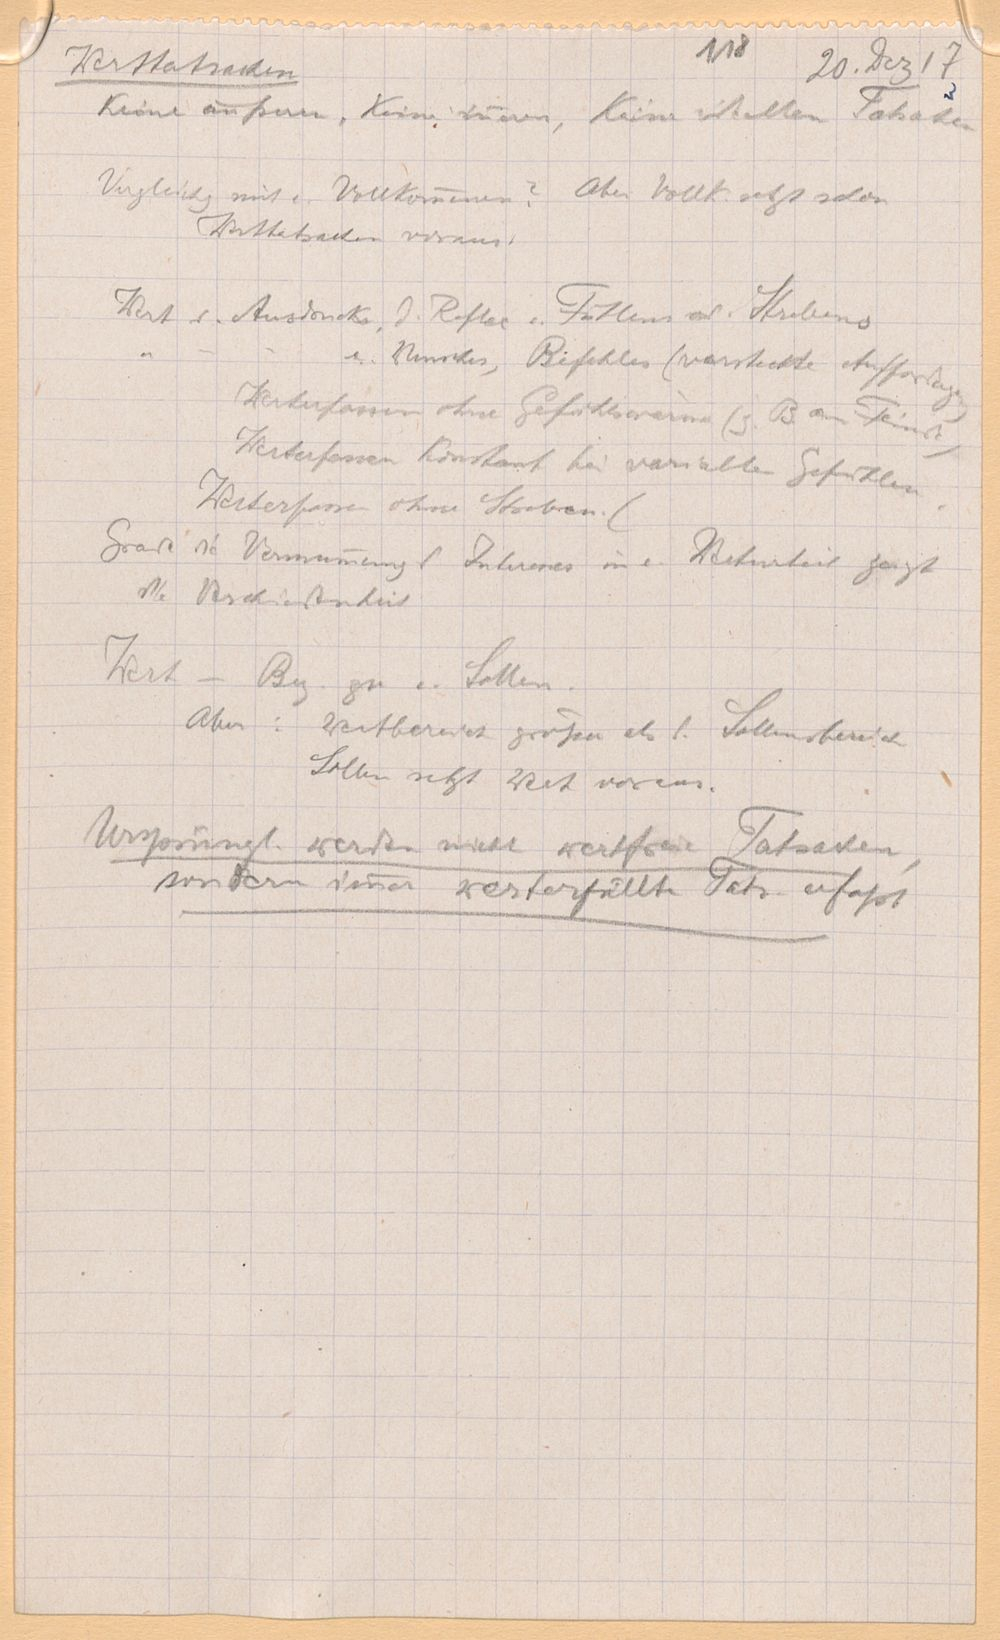 Werttatsachen 1/18 20. Dez 17
Keine äußeren, Keine inneren, Keine idealen Tatsachen
Vergleichg mit e. Vollkommenen? Aber Vollk. setzt schon
Werttatsachen voraus.
Wert e. Ausdrucks, d. Reflex e. Fühlens od. Strebens
" - - e. Wunsches, Befehles (versteckte Aufforderung)
Werterfassen ohne Gefühlswärme (z. B. am Feinde)
Werterfassen Konstant bei variablen Gefühlen.
Werterfassen ohne Streben. (
Grade die Vermummung d. Interesses in e. Werturteil zeigt
die Verschiedenheit
Wert — Bez. zu e. Sollen.
Aber: Wertbereich größer als d. Sollensbereich
Sollen setzt Wert voraus.
Ursprüngl. werden nicht wertfreie Tatsachen,
sondern immer werterfüllte Tats. erfaßt